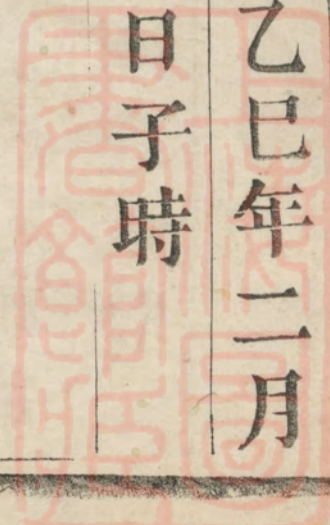 乙巳年二月
日子時